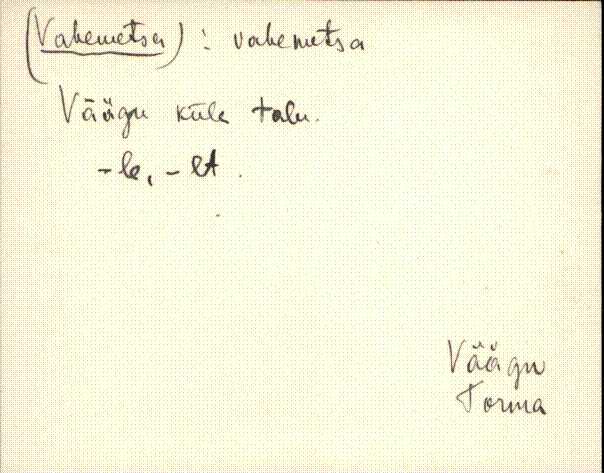 (Vahemetsa) : vahemetsa
Väägu küla talu.
-le, -lt.
Väägu
Torma